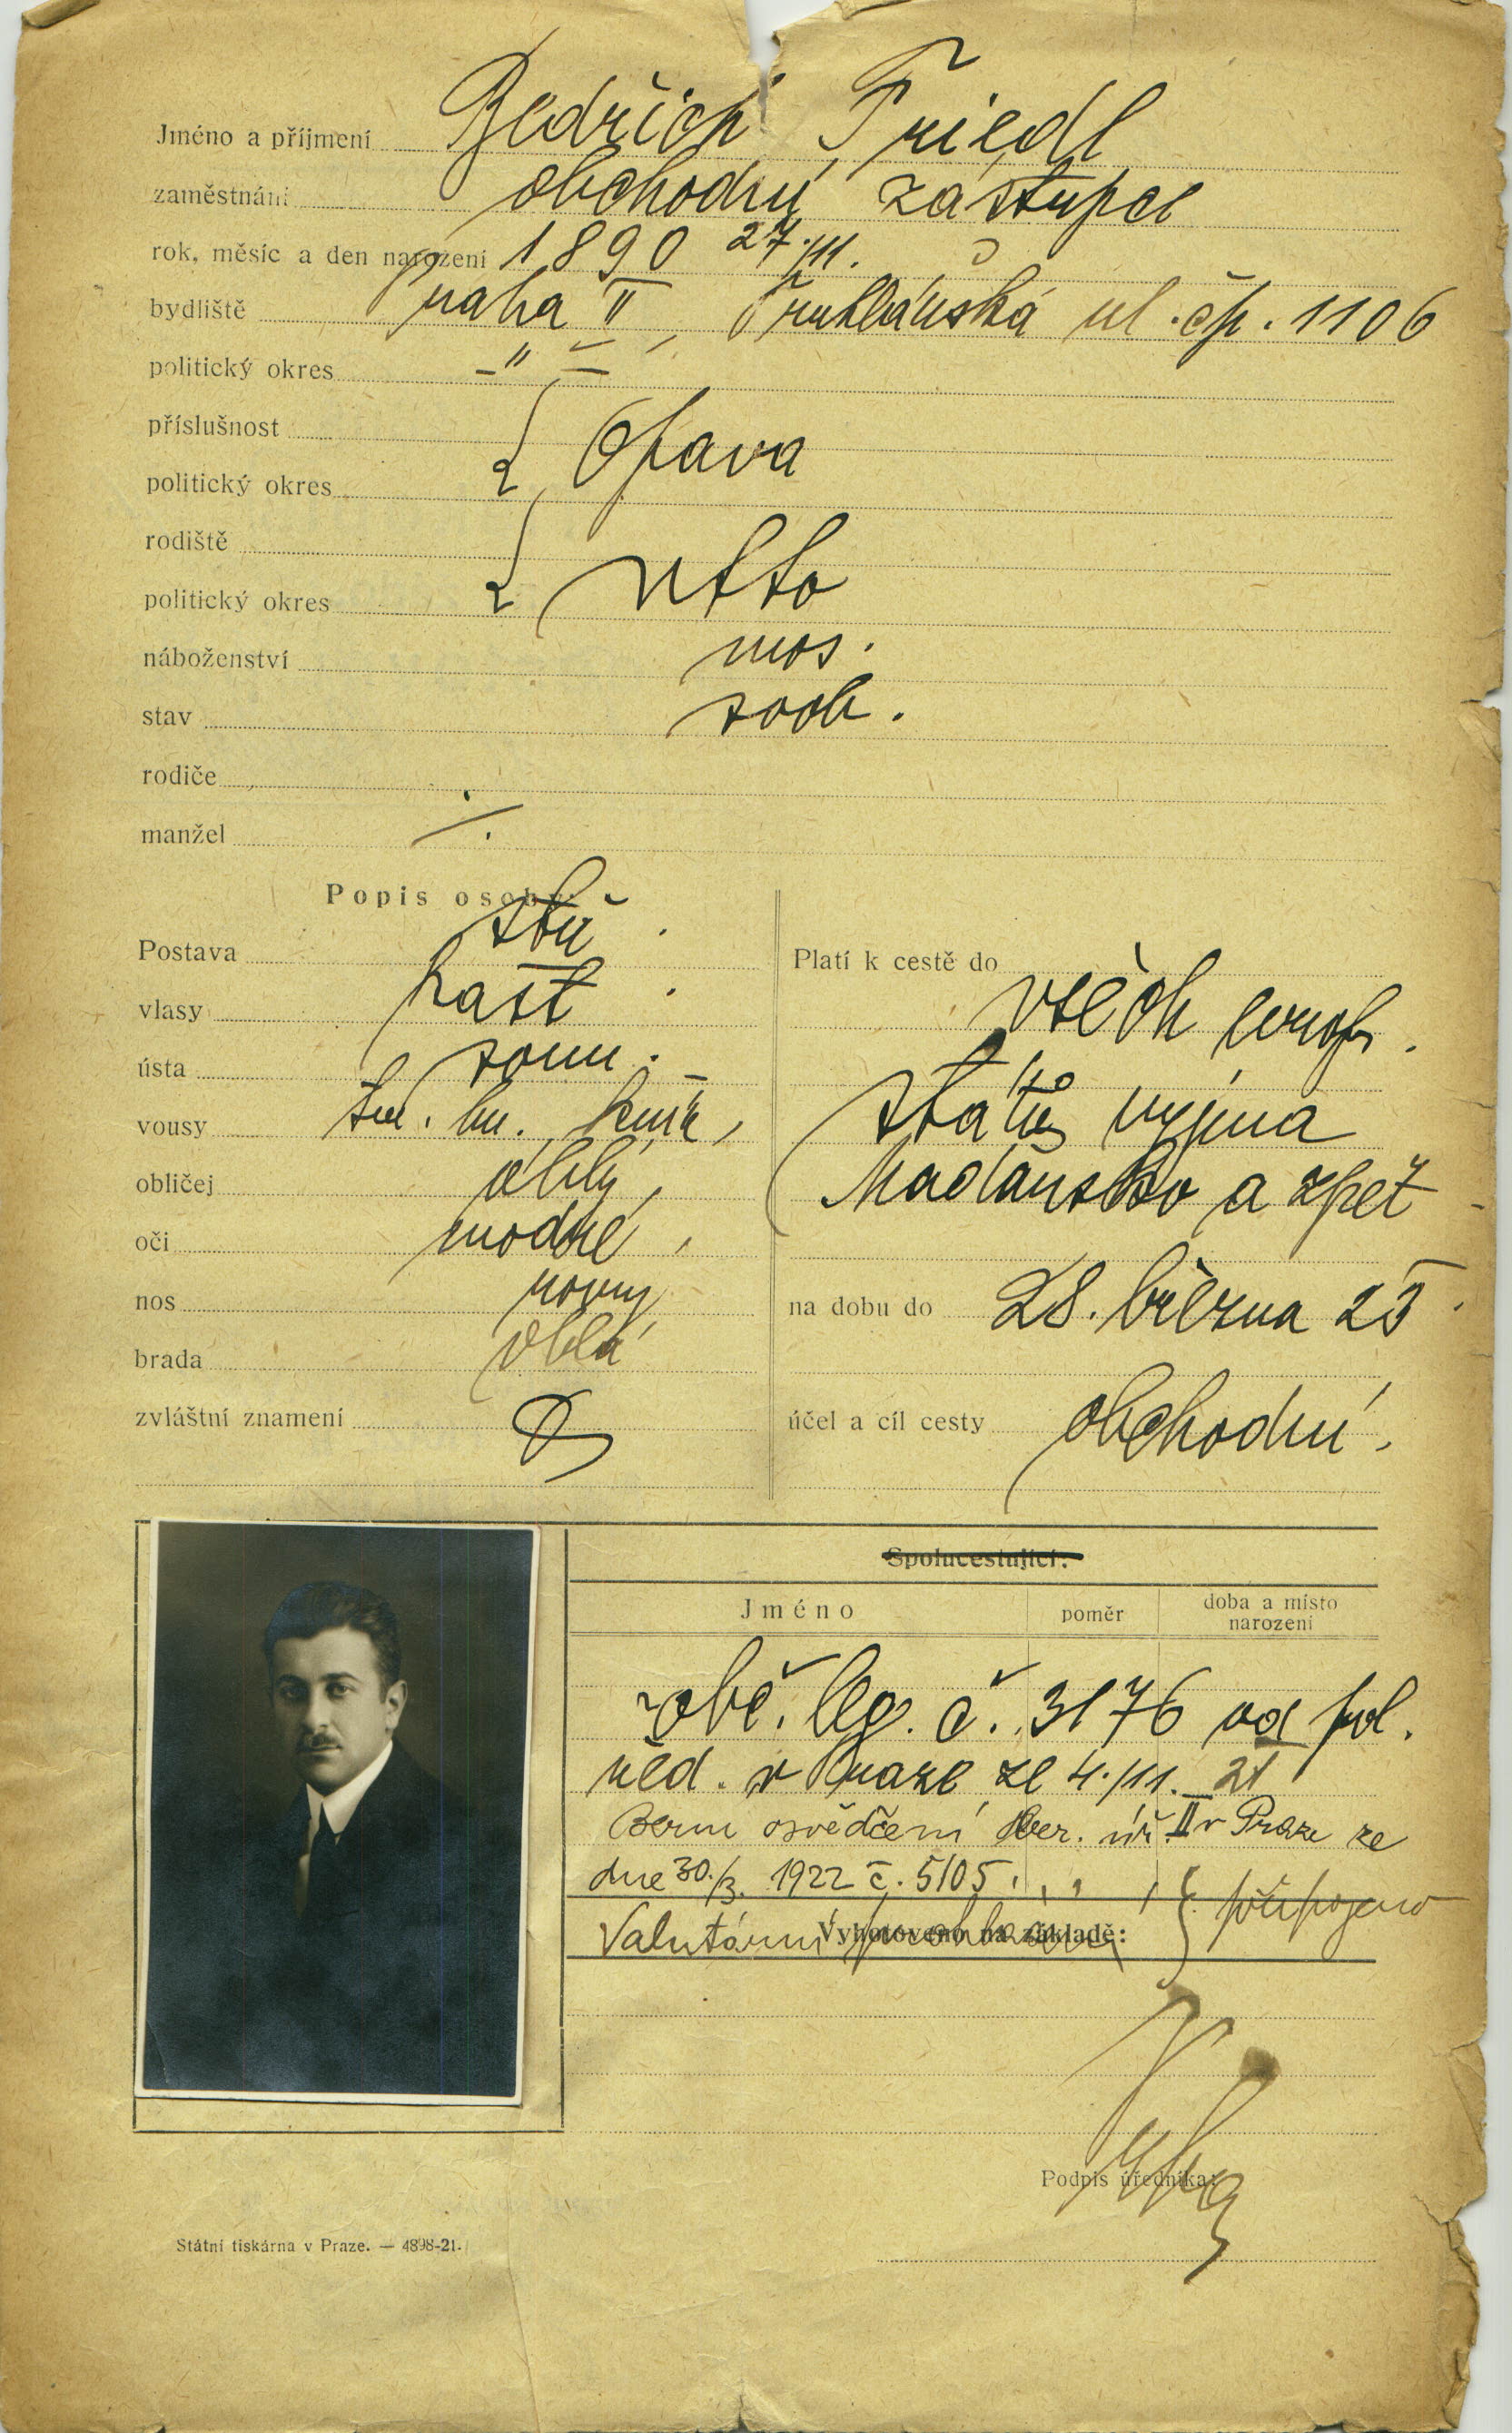 Jméno a příjmení Bedřich Friedl
zaměstnání obchodní zástupce
rok, měsíc a den narození 1890 27./11.
bydliště Praha II, Truhlářská ul. čp. 1106
politický okres – " –
příslušnost
Opava
politický okres
rodiště
detto
politický okres
náboženství mos.
stav svob.
rodiče
manžel ./.
Popis osoby:
Postava stř.
vlasy kašt.
ústa soum.
vousy knír,
obličej oblý,
oči modré,
nos rovný
brada oblá
zvláštní znamení
Platí k cestě do
všech evrop.
států vyjma
Maďarsko a zpět
na dobu do 28. března 23.
účel a cíl cesty obchodní.
Spolucestující:
Jméno poměr doba a místo narození
obč. leg. č. 3176 od pol.
řed. v Praze ze 4./11. 21
Bern osvědčení ber. úř. II v Praze ze
dne 30./3. 1922 č. 5105.
připojeno
Valutární prohlášení
Vyhotoveno na základě:
Podpis úředníka:
Státní tiskárna v Praze. — 4898-21.